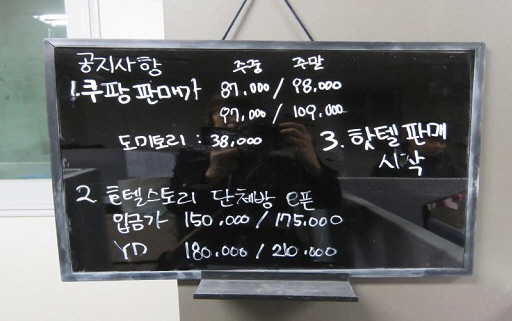 공지사항 주중 주말
1. 쿠팡 판매가 87,000 / 98,000
97,000 / 109,000
도미토리 : 38,000
3. 핫텔 판매
시작
2. 호텔스토리 단체방 오픈
입금가 150,000 / 175,000
YD 180,000 / 210,000